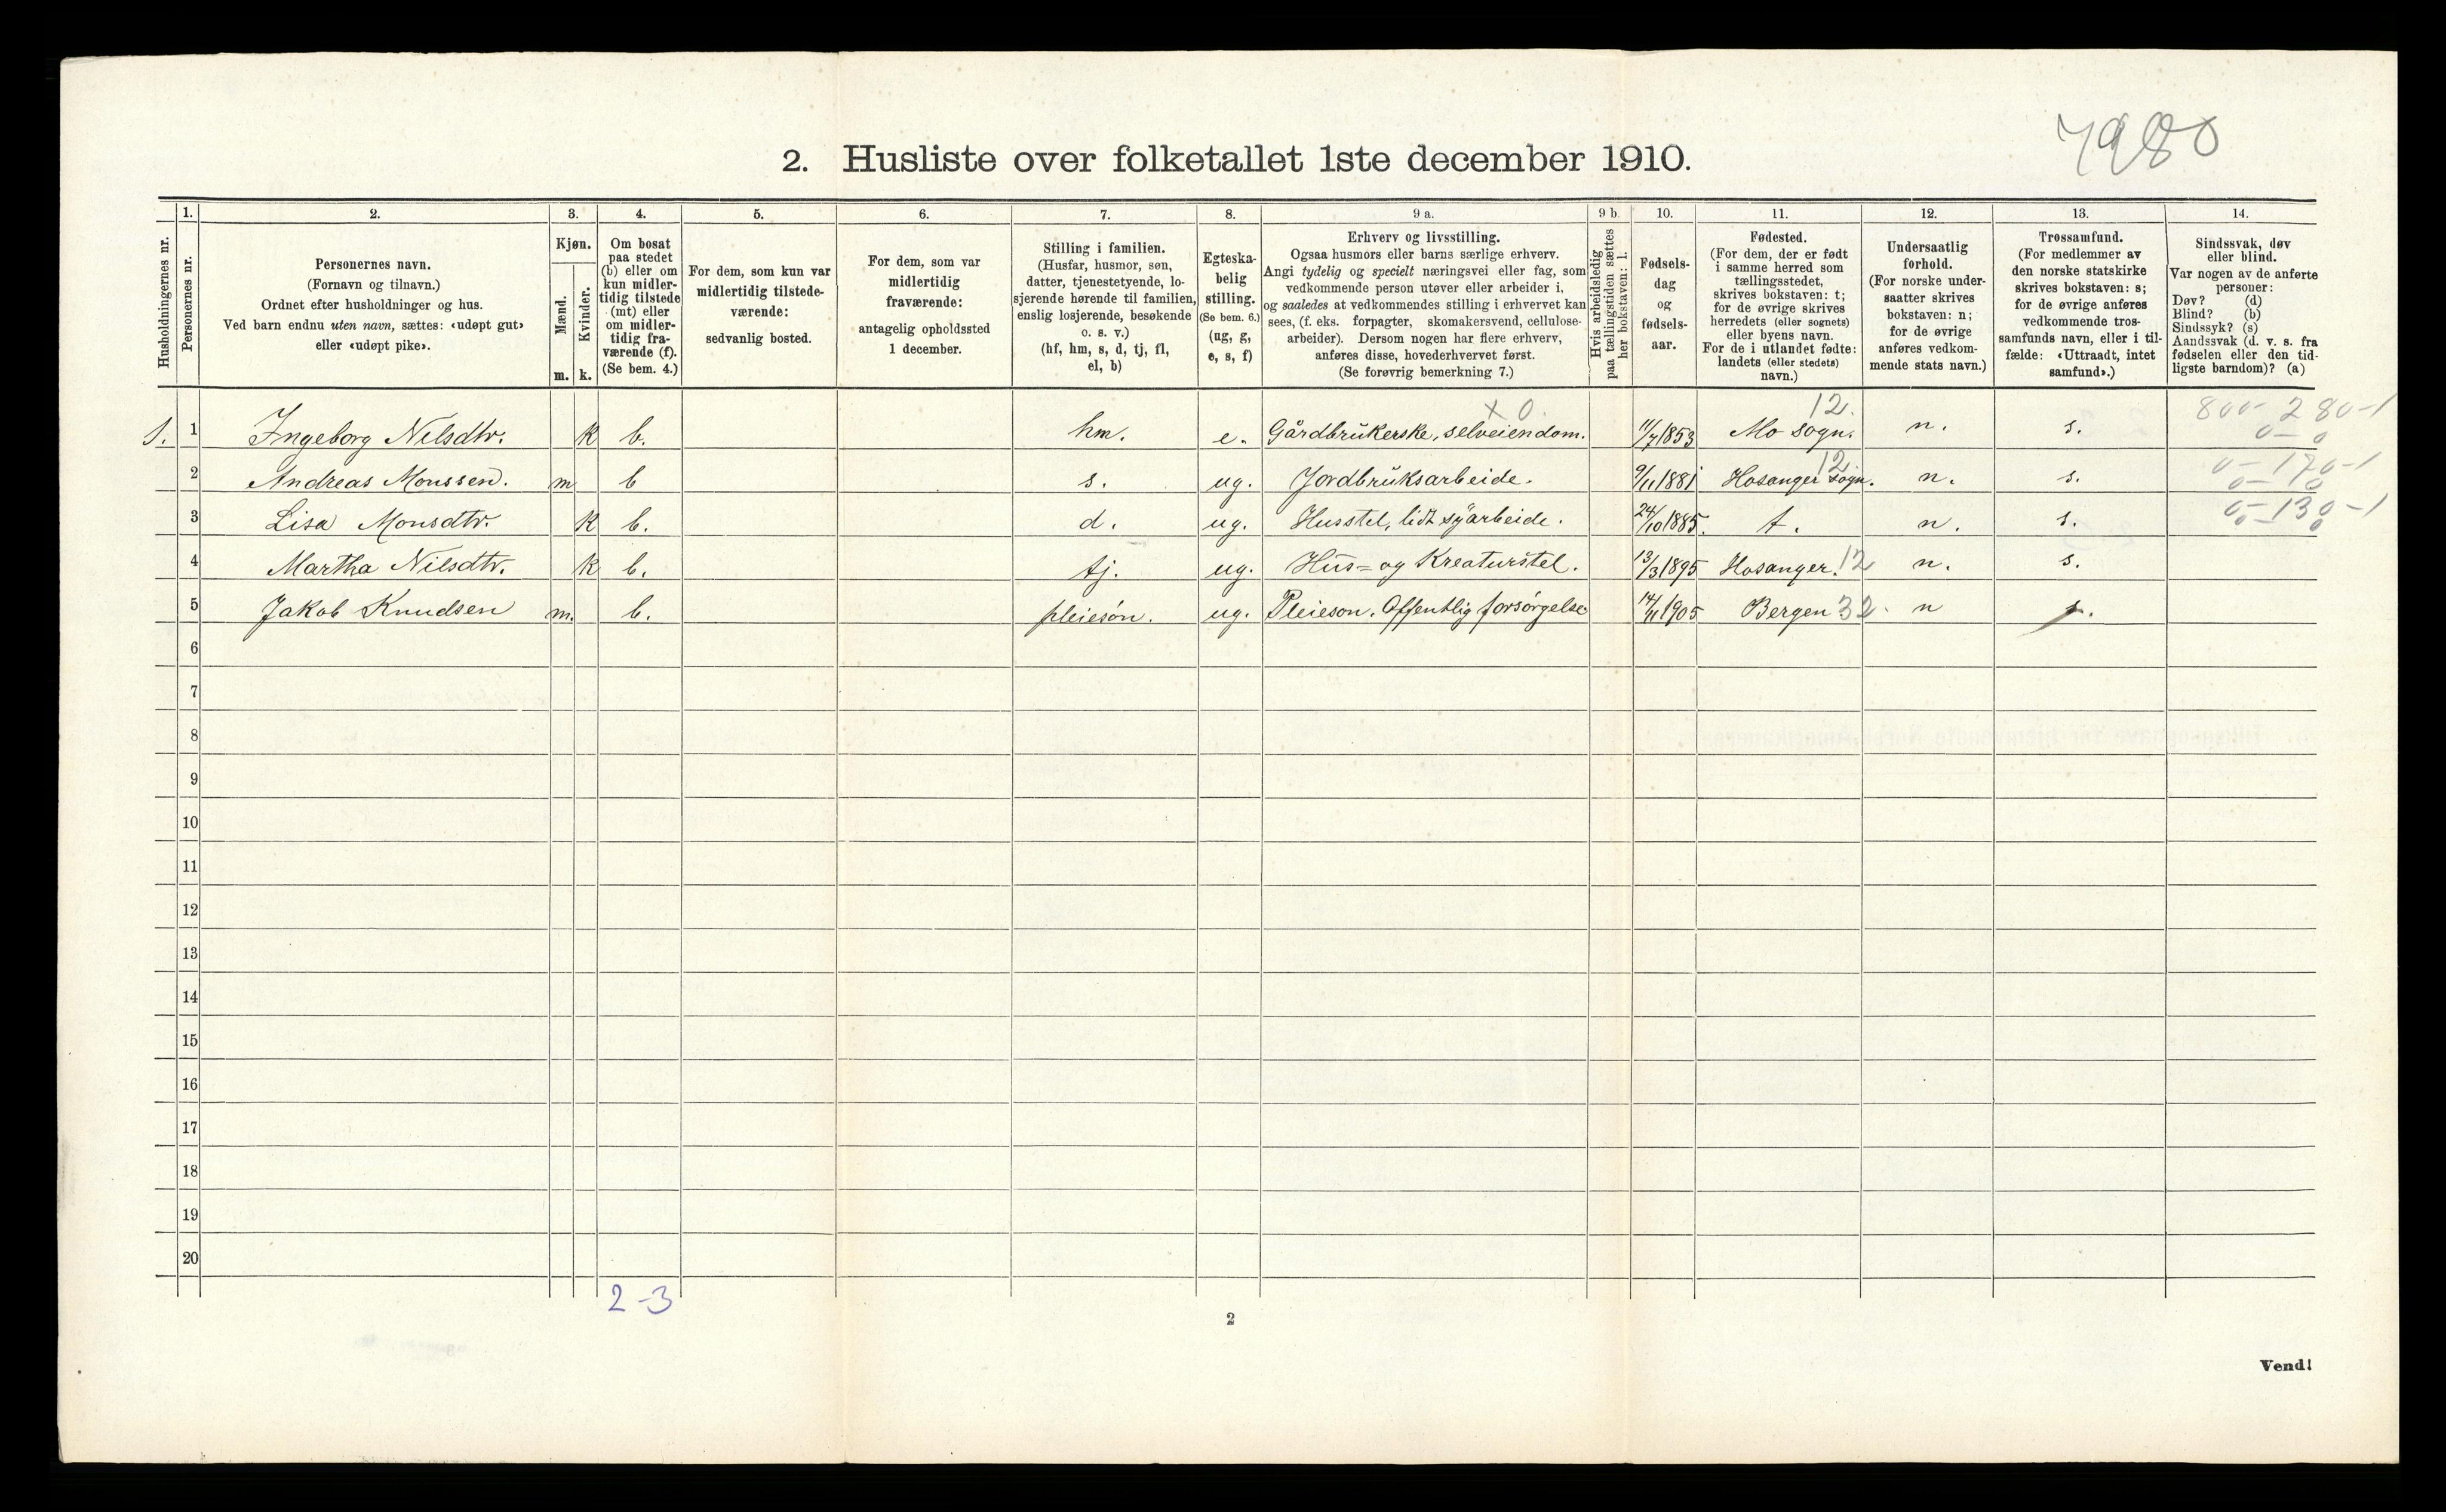 7980
2. Husliste over folketallet 1ste december 1910.
1. 2. 3. 4. 5. 6. 7. 8. 9 a. 9 b. 10. 11. 12. 13. 14.
Husholdningernes nr.
Personernes nr.
Personernes navn.
(Fornavn og tilnavn.)
Ordnet efter husholdninger og hus.
Ved barn endnu uten navn, sættes: «udøpt gut»
eller «udøpt pike».
Kjøn.
Mænd.
Kvinder.
m. k.
Om bosat
paa stedet
(b) eller om
kun midler-
tidig tilstede
(mt) eller
om midler-
tidig fra-
værende (f).
(Se bem. 4.)
For dem, som kun var
midlertidig tilstede-
værende:
sedvanlig bosted.
For dem, som var
midlertidig
fraværende:
antagelig opholdssted
1 december.
Stilling i familien.
(Husfar, husmor, søn,
datter, tjenestetyende, lo-
sjerende hørende til familien,
enslig losjerende, besøkende
o. s. v.)
(hf, hm, s, d, tj, fl,
el, b)
Egteska-
belig
stilling.
(Se bem. 6.)
(ug, g,
e, s, f)
Erhverv og livsstilling.
Ogsaa husmors eller barns særlige erhverv.
Angi tydelig og specielt næringsvei eller fag, som
vedkommende person utøver eller arbeider i,
og saaledes at vedkommendes stilling i erhvervet kan
sees, (f. eks. forpagter, skomakersvend, cellulose-
arbeider). Dersom nogen har flere erhverv,
anføres disse, hovederhvervet først.
(Se forøvrig bemerkning 7.)
Hvis arbeidsledig
paa tællingstiden sættes
her bokstaven: l.
Fødsels-
dag
og
fødsels-
aar.
Fødested.
(For dem, der er født
i samme herred som
tællingsstedet,
skrives bokstaven: t;
for de øvrige skrives
herredets (eller sognets)
eller byens navn.
For de i utlandet fødte:
landets (eller stedets)
navn.)
Undersaatlig
forhold.
(For norske under-
saatter skrives
bokstaven: n;
for de øvrige
anføres vedkom-
mende stats navn.)
Trossamfund.
(For medlemmer av
den norske statskirke
skrives bokstaven: s;
for de øvrige anføres
vedkommende tros-
samfunds navn, eller i til-
fælde: «Uttraadt, intet
samfund».)
Sindssvak, døv
eller blind.
Var nogen av de anførte
personer:
Døv? (d)
Blind? (b)
Sindssyk? (s)
Aandssvak (d. v. s. fra
fødselen eller den tid-
ligste barndom)? (a)
x 0. 12. 800 - 280-1
1. 1 Ingeborg Nilsdtr. k b. hm. e. Gårdbrukerske, selveiendom. 11/7 1853 Mo sogn. n. s. 0 - 0
12. 0 - 170-1
2 Andreas Monssen. m b s. ug. Jordbruksarbeide. 9/11 1881 Hosanger sogn. n. s. 0 - 0
3 Lisa Monsdtr. k b. d. ug. Husstel, lidt syarbeide. 24/10 1885. t. n. s. 0 - 130-1
0 - 0
4 Martha Nilsdtr. k b. tj. ug. Hus= og Kreaturstel. 13/3 1895 Hosanger. 12 n. s.
5 Jakob Knudsen m. b. pleiesön. ug. Pleieson. Offentlig forsörgelse 14/11 1905 Bergen 32. n s.
6
7
8
9
10
11
12
13
14
15
16
17
18
19
20
2-3
2
Vend!